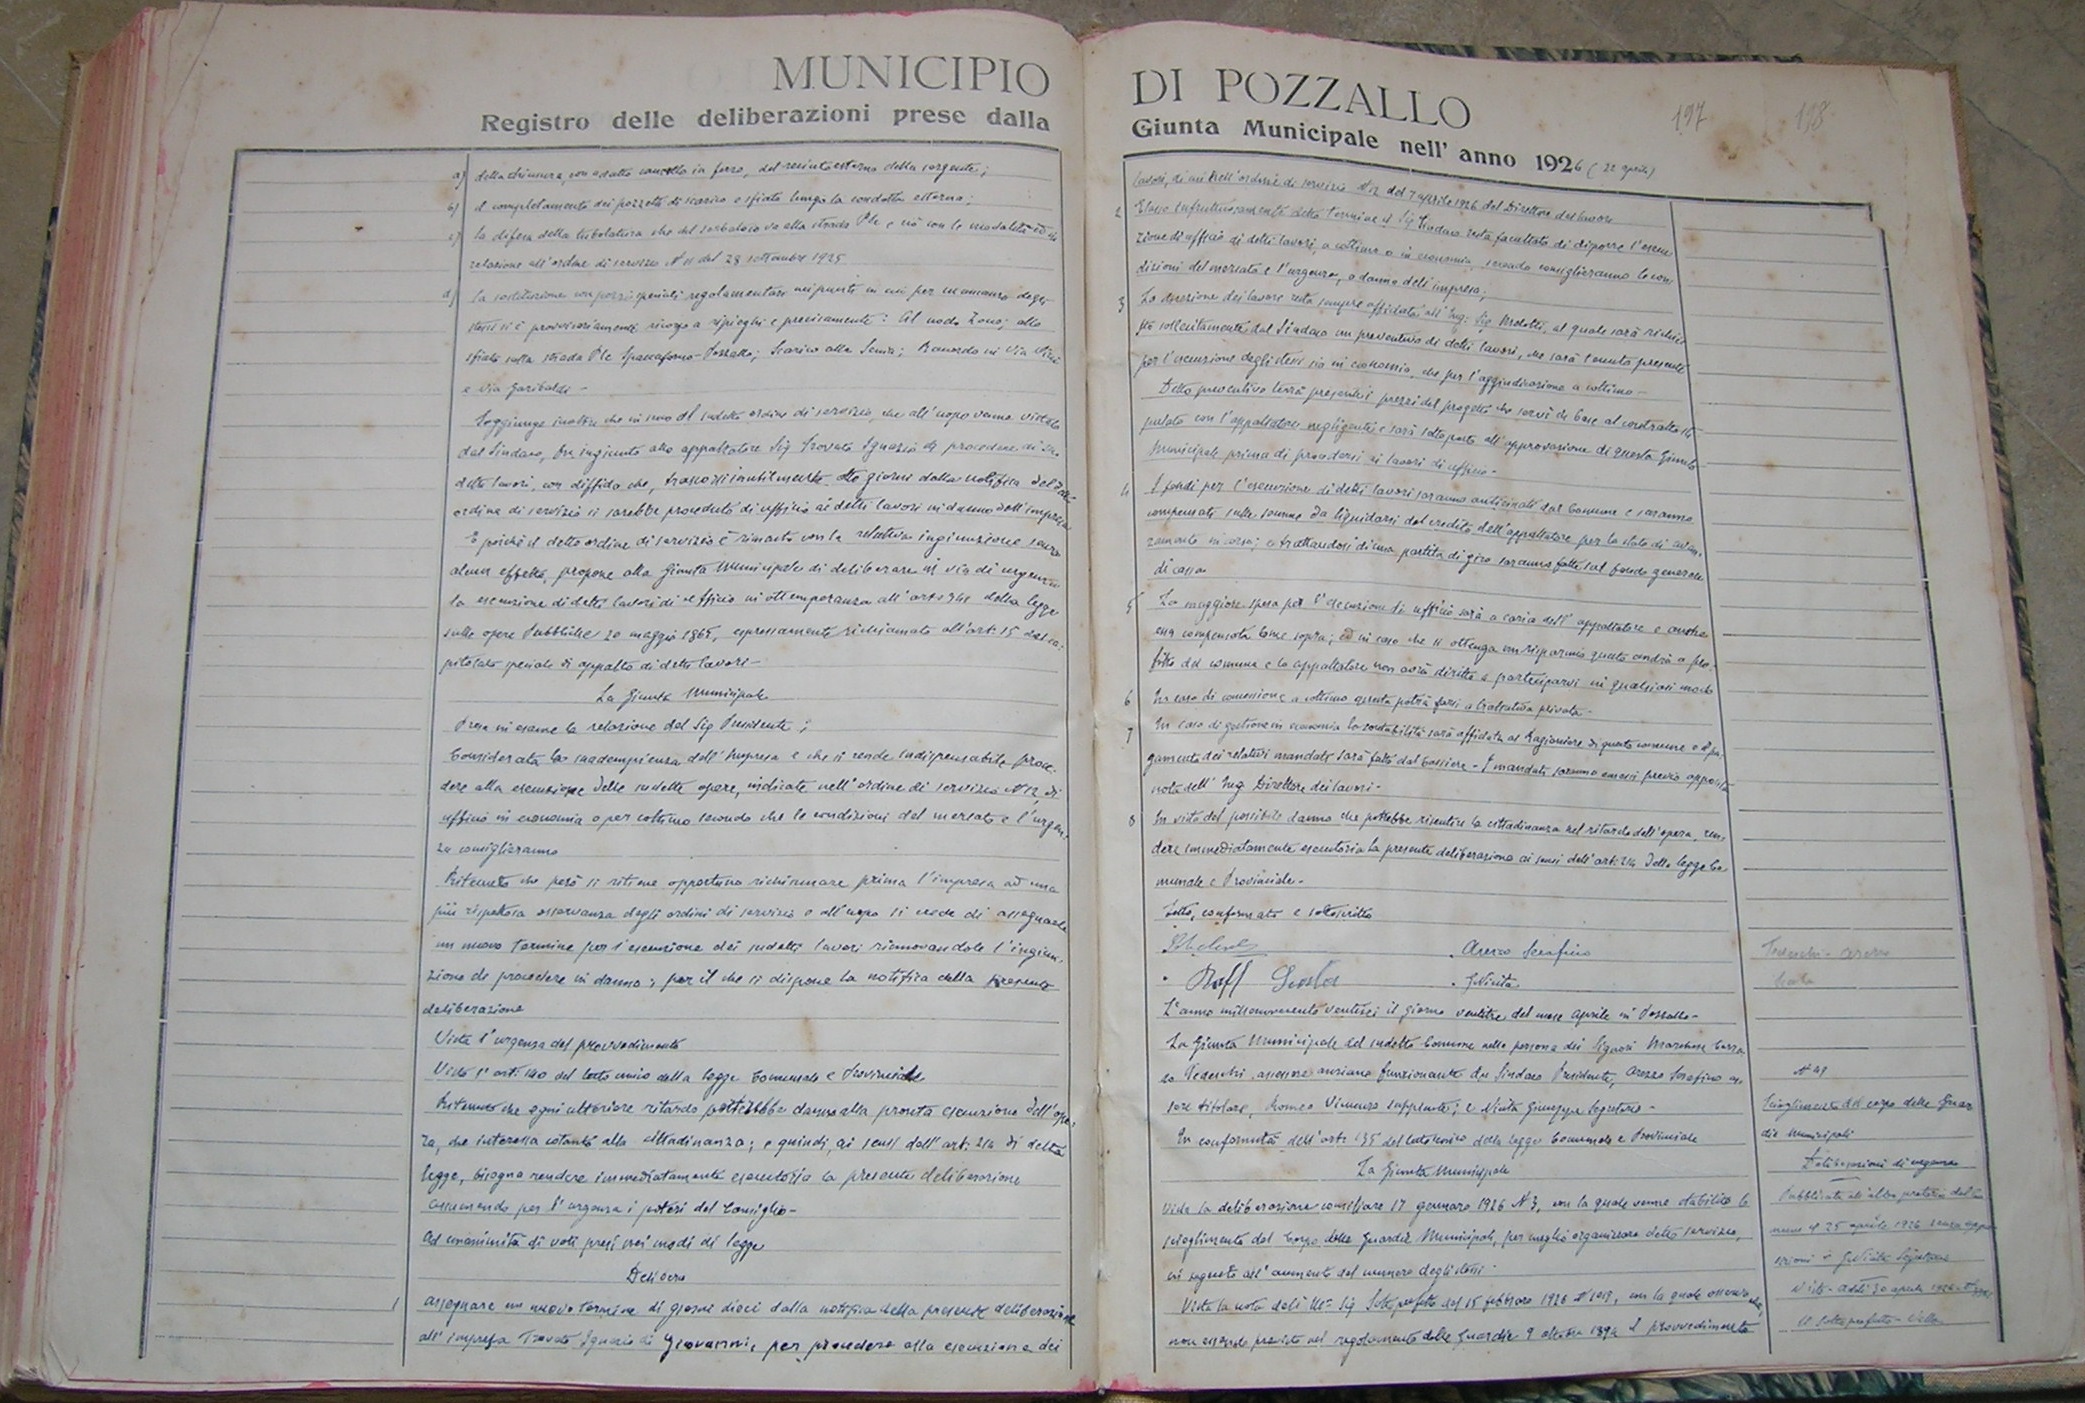 MUNICIPIO
Registro delle deliberazioni prese dalla
a) della chiusura, con adatto cancello in ferro, del recinto esterno della sorgente;
b) il completamento dei pozzetti di scarico e sfiato lungo la condotta esterna;
c) la difesa della tubolatura che dal serbatoio va alla strada Ple e ciò con le modalità
relazione all'ordine di servizio N 11 del 28 settembre 1925
d) la sostituzione con pezzi speciali regolamentari nei punti in cui per mancanza degli
stessi si è provvisoriamente ricorso a ripieghi e precisamente: Al nodo Zona; allo
sfiato sulla strada Ple Spaccaforno-Pozzallo; Scarico alla Senia; Raccordo in Via
e Via Garibaldi -
Soggiunge inoltre che in seno al sudetto ordine di servizio, che all'uopo venne vistato
dal Sindaco, fu ingiunto allo appaltatore Sig Trovato Ignazio di procedere ai su
detti lavori, con diffida che, trascorsi inutilmente otto giorni dalla notifica del
ordine di servizio si sarebbe proceduto di ufficio ai detti lavori in danno dell'impresa
E poichè il detto ordine di servizio è rimasto con la relativa ingiunzione senza
alcun effetto, propone alla Giunta Municipale di deliberare in via di urgenza
la esecuzione di detti lavori di ufficio in ottemperanza all'art. 341 della legge
sulle opere Pubbliche 20 maggio 1865, espressamente richiamato all'art. 15 del ca-
pitolato speciale di appalto di detti lavori -
La Giunta Municipale
Presa in esame la relazione del Sig Presidente;
Considerata la inadempienza dell'Impresa e che si rende indispensabile proce-
dere alla esecuzione delle sudette opere, indicate nell'ordine di servizio N 12, di
ufficio in economia o per cottimo secondo che le condizioni del mercato e l'urgen-
za consiglieranno
Ritenuto che però si ritiene opportuno richiamare prima l'impresa ad una
più rispettosa osservanza degli ordini di servizio e all'uopo si crede di assegnarle
un nuovo termine per l'esecuzione dei sudetti lavori rinnovandole l'ingiun-
zione di procedere in danno; per il che si dispone la notifica della presente
deliberazione
Vista l'urgenza del provvedimento
Visto l'art. 140 del testo unico della legge Comunale e Provinciale
Ritenuto che ogni ulteriore ritardo potrebbe danno alla pronta esecuzione dell'ope-
ra, che interessa cotanto alla cittadinanza; e quindi, ai sensi dell'art. 214 di detta
legge, bisogna rendere immediatamente esecutoria la presente deliberazione
assumendo per l'urgenza i poteri del Consiglio -
Ad unanimità di voti presi nei modi di legge
Delibera
1 assegnare un nuovo termine di giorni dieci dalla notifica della presente deliberazione
all'impresa Trovato Ignazio di Giovanni, per procedere alla esecuzione dei
DI POZZALLO
197 198
Giunta Municipale nell'anno 1926 (22 aprile)
lavori, di cui nell'ordine di servizio N 12 del 7 aprile 1926 del Direttore dei lavori
2 Elasso infruttuosamente detto termine il Sig Sindaco resta facultato di disporre l'esecu
zione di ufficio di detti lavori, a cottimo o in economia, secondo consiglieranno le con-
dizioni del mercato e l'urgenza, a danno dell'impresa;
3 La direzione dei lavori resta sempre affidata all'Ing: Sig al quale sarà richie
sto sollecitamente dal Sindaco un preventivo di detti lavori, che sarà tenuto presente
per l'esecuzione degli stessi sia in economia, che per l'aggiudicazione a cottimo -
Detto preventivo terrà presente i prezzi del progetto che servì di base al contratto sti
pulato con l'appaltatore negligente e sarà sottoposto all'approvazione di questa Giunta
Municipale prima di procedersi ai lavori di ufficio -
4 I fondi per l'esecuzione di detti lavori saranno anticipati dal Comune e saranno
compensati sulle somme da liquidarsi del credito dell'appaltatore per lo stato di avan-
zamento in corso; e trattandosi di una partita di giro saranno fatti sul fondo generale
di cassa
5 La maggiore spesa per l'esecuzione di ufficio sarà a carico dell'appaltatore e anche
essa compensata come sopra; ed in caso che si ottenga un risparmio questo andrà a pro-
fitto del comune e lo appaltatore non avrà diritto a parteciparvi in qualsiasi modo
6 In caso di concessione a cottimo questa potrà farsi a trattativa privata -
7 In caso di gestione in economia la contabilità sarà affidata al Ragioniere di questo comune e il pa-
gamento dei relativi mandati sarà fatto dal Cassiere - I mandati saranno emessi previo apposita
nota dell'Ing Direttore dei lavori -
8 In vista del possibile danno che potrebbe risentire la cittadinanza nel ritardo dell'opera, ren-
dere immediatamente esecutoria la presente deliberazione ai sensi dell'art: 214 della legge Co
munale e Provinciale -
Letto, confermato e sottoscritto
Arezzo Serafino
Raff
G Ninita
Tedeschi - Arezzo
L'anno millenovecento ventisei il giorno ventitre del mese aprile in Pozzallo -
La Giunta Municipale del sudetto Comune nelle persone dei Signori Marchese
Tedeschi assessore anziano funzionante da Sindaco Presidente, Arezzo Serafino as
sore titolare, Romeo Vincenzo supplente; e Ninita Giuseppe Segretario -
In conformità dell'art: 135 del testo unico della legge Comunale e Provinciale
La Giunta Municipale
Vista la deliberazione consiliare 17 gennaro 1926 N 3, con la quale venne stabilito lo
scioglimento del Corpo delle Guardie Municipali, per meglio organizzare detto servizio,
in seguito all'aumento del numero degli stessi -
Vista la nota dell'Ill.mo Sig Sottoprefetto del 15 febbraro 1926 N 1019, con la quale osserva che,
non essendo previsto nel regolamento delle Guardie 9 ottobre 1894 il provvedimento
N 49
Scioglimento del corpo delle Guar
die Municipali
Deliberazioni di urgenza
Pubblicata all'albo pretorio del co
mune il 25 aprile 1926 senza oppo
sizioni - G Ninita Segretario
Visto - addì 30 aprile 1926
Il Sottoprefetto -